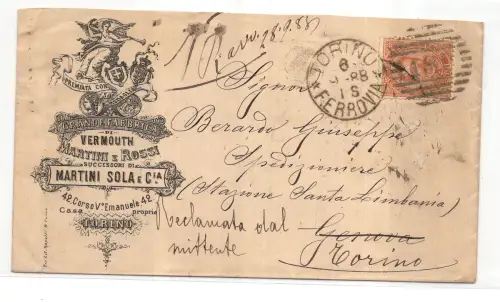 PREMIATA CON
GRANDE FABBRICA
DI
VERMOUTH
MARTINI E ROSSI
SUCCESSORI DI
MARTINI SOLA E CIA
42. Corso Vo. Emanuele 42.
Casa propria
TORINO
28.9.88
TORINO
6
9-88
1S
FERROVIA
Signor
Berardo Giuseppe
Spedizioniere
(Stazione Santa Limbania)
Genova
Torino
Reclamata dal
mittente